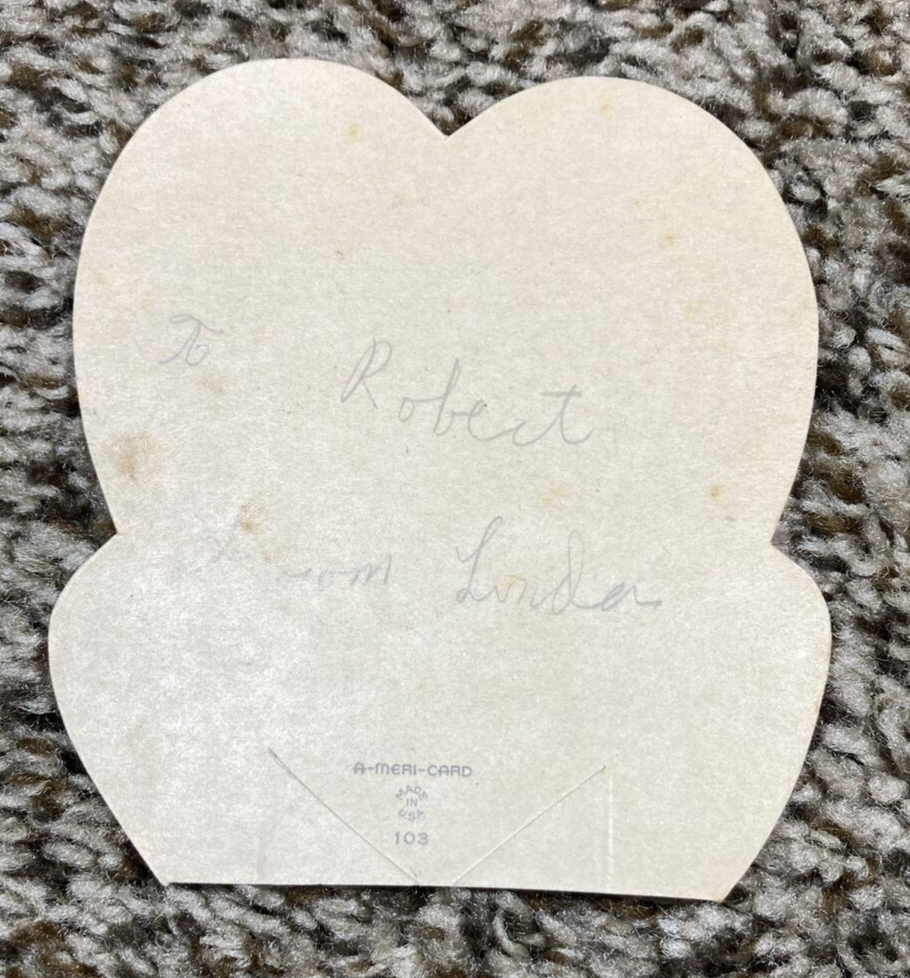 To
Robert
From Linda
A-MERI-CARD
MADE
IN
USA
103